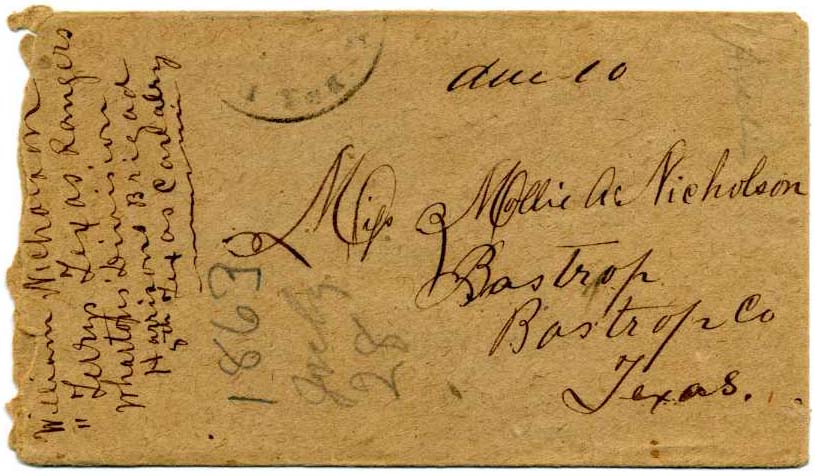 due 10
Miss Mollie A. Nicholson
Bastrop
Bastrop Co
Texas.
William Nicholson
"Terrys Texas Rangers
Whartons Division
Harrisons Brigad
8th Texas Cavalry
1863
July
28